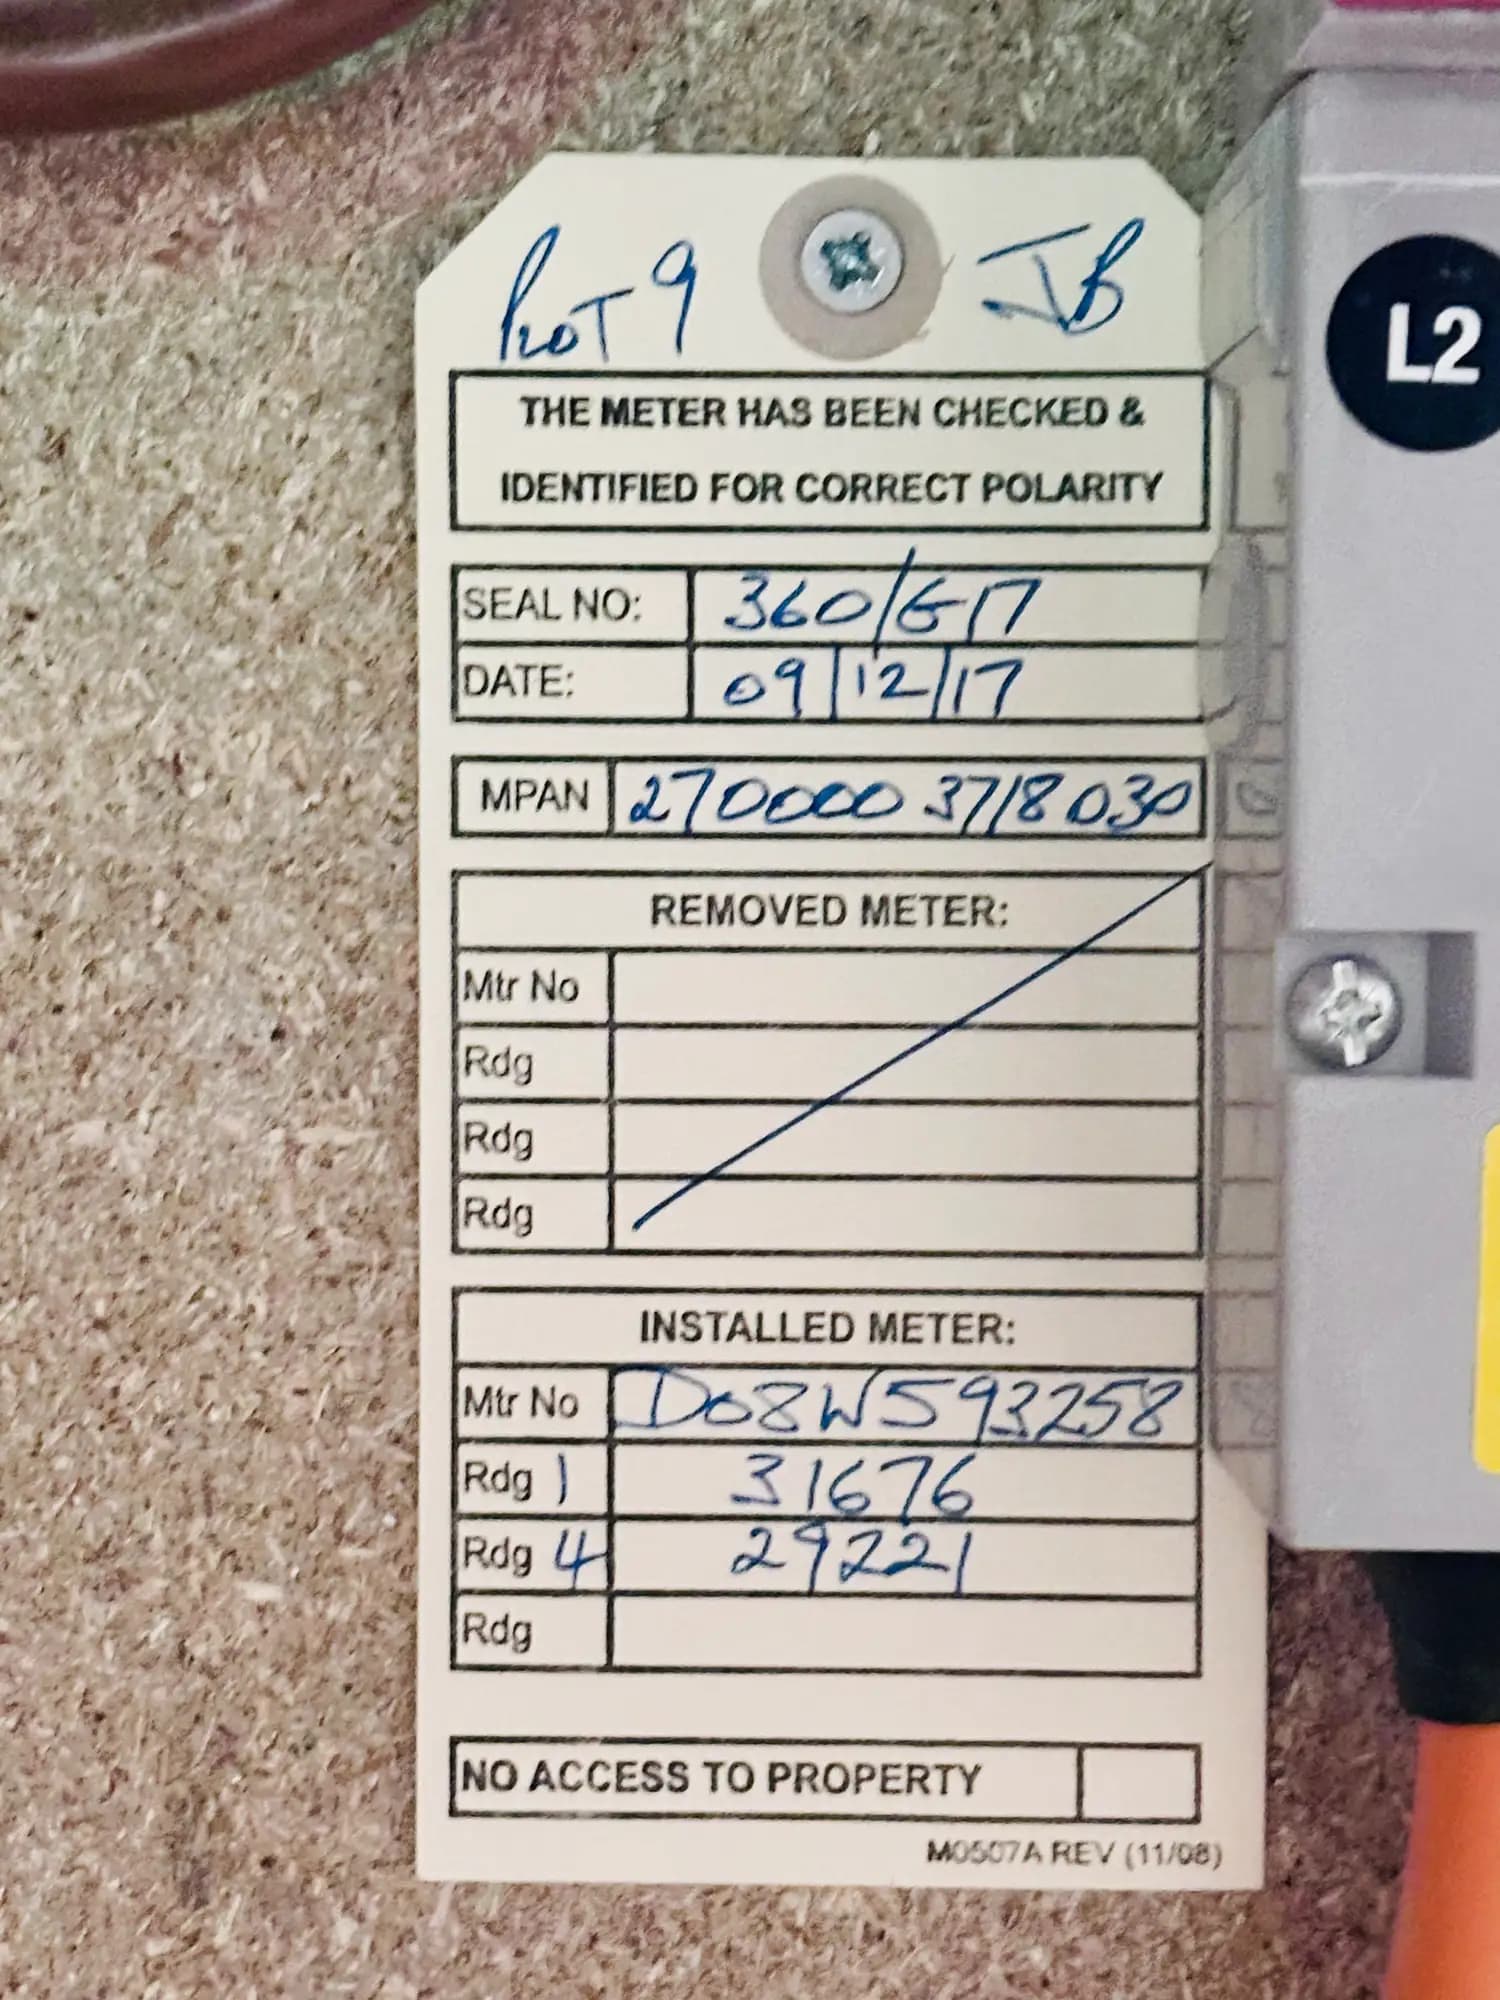 PLOT 9 JB
THE METER HAS BEEN CHECKED &
IDENTIFIED FOR CORRECT POLARITY
SEAL NO: 360/G17
DATE: 09/12/17
MPAN 2700003718030
REMOVED METER:
Mtr No
Rdg
Rdg
Rdg
INSTALLED METER:
Mtr No D08W593258
Rdg 1 31676
Rdg 4 29221
Rdg
NO ACCESS TO PROPERTY
M0507A REV (11/08)
L2